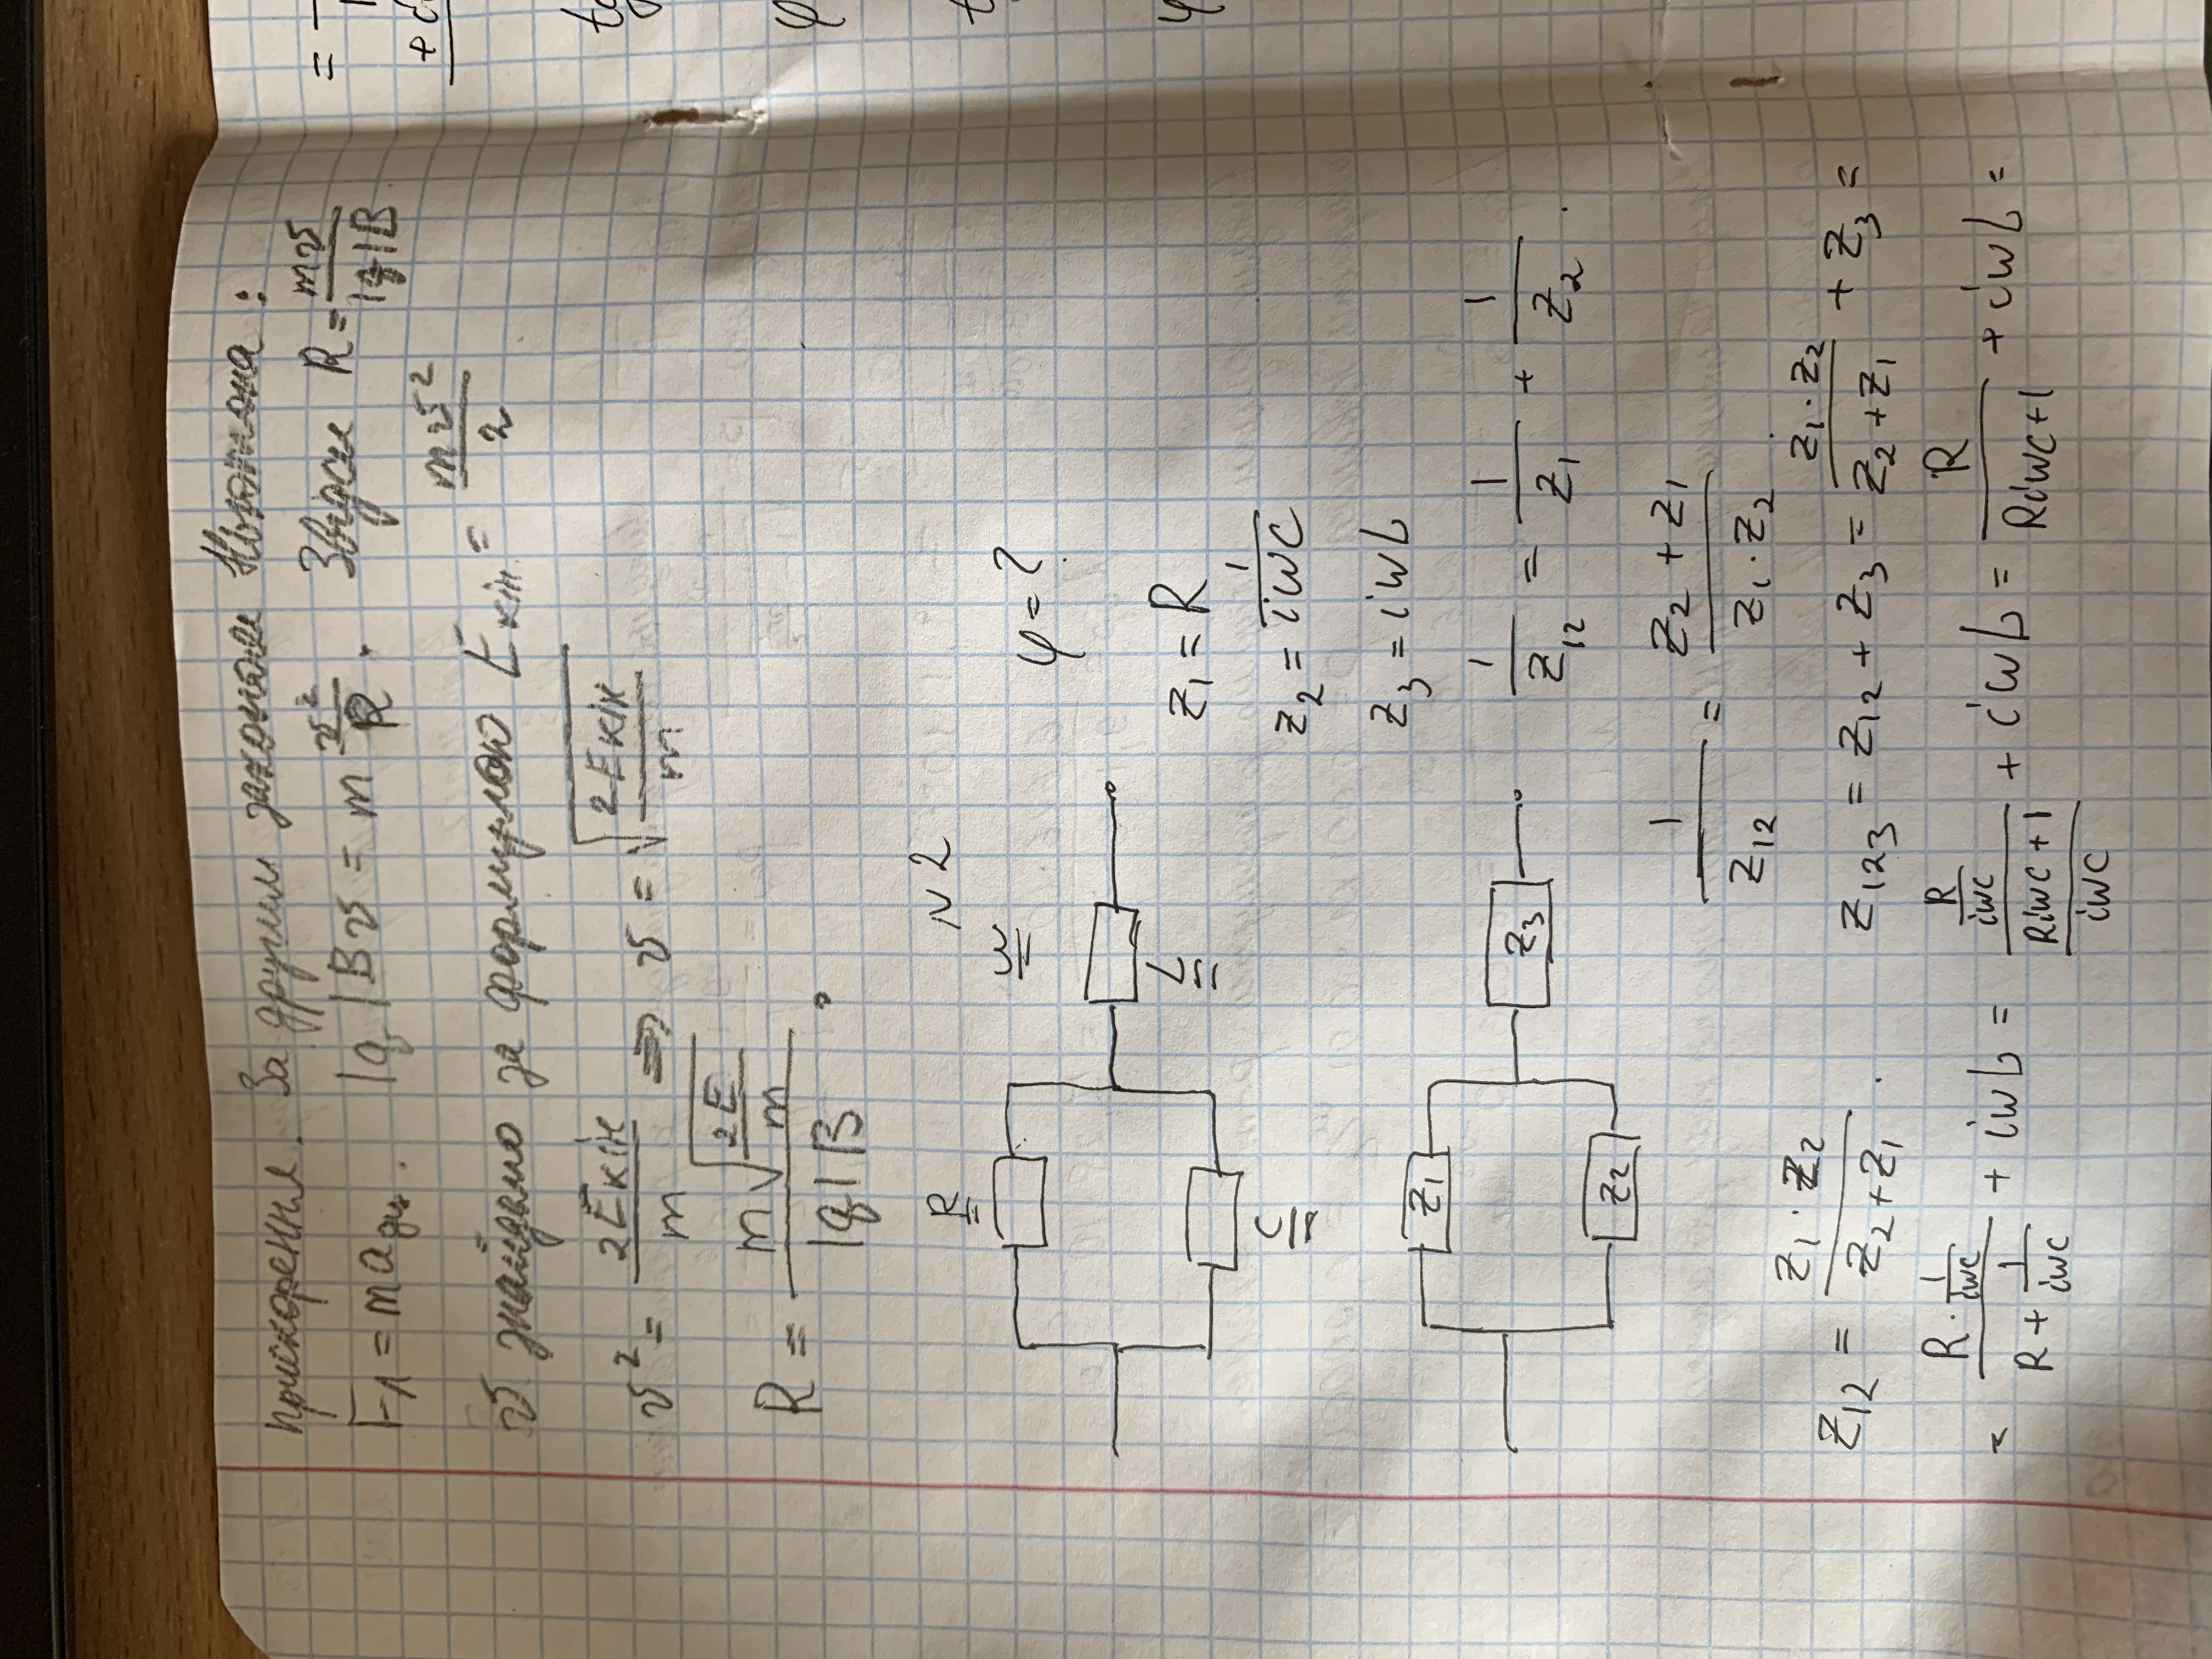 прискорення. За другим законом Ньютона :
Fл = maдц. |q|Bv = m v²/R. Звідси R = mv/|q|B
v знайдемо за формулою Eкін = mv²/2
v² = 2Eкін/m => v = √(2Eкін/m)
R = m√(2E/m) / |q|B.
N2
R
ω
φ = ?
L
C
z₁ = R
z₂ = 1/iωC
z₃ = iωL
z₁
z₃
z₂
1/z₁₂ = 1/z₁ + 1/z₂.
1/z₁₂ = (z₂ + z₁)/(z₁·z₂).
z₁₂ = (z₁·z₂)/(z₂+z₁). z₁₂₃ = z₁₂ + z₃ = (z₁·z₂)/(z₂+z₁) + z₃ =
= (R·1/iωC)/(R + 1/iωC) + iωL = (R/iωC)/((Riωc+1)/iωC) + iωL = R/(Riωc+1) + iωL =
=
+ i
tg
φ
t
φ